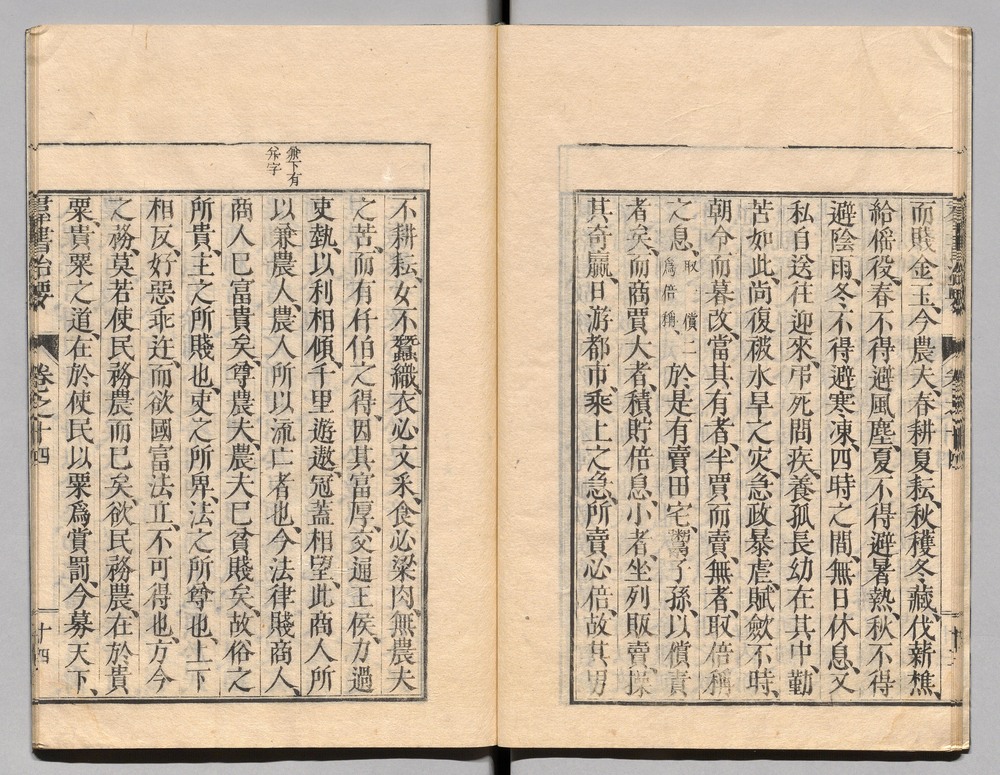 而賤金玉、今農夫、春耕夏耘、秋穫冬藏、伐薪樵、
給徭役、春不得避風塵、夏不得避暑熱、秋不得
避陰雨、冬不得避寒凍、四時之間、無日休息、又
私自送往迎來、弔死問疾、養孤長幼在其中、勤
苦如此、尚復被水旱之灾、急政暴虐、賦歛不時、
朝令而暮改、當其有者、半賈而賣、無者、取倍稱
之息、取一償二爲倍稱、於是有賣田宅、鬻子孫、以償責
者矣、而商賈大者、積貯倍息、小者、坐列販賣、操
其奇贏、日游都市、乘上之急、所賣必倍、故其男
不耕耘、女不蠶織、衣必文采、食必粱肉、無農夫
之苦、而有仟伯之得、因其富厚、交通王侯、力過
吏埶、以利相傾、千里遊遨、冠蓋相望、此商人所
以兼農人、農人所以流亡者也、今法律賤商人、
商人已富貴矣、尊農夫、農夫已貧賤矣、故俗之
所貴、主之所賤也、吏之所卑、法之所尊也、上下
相反、好惡乖迕、而欲國富法立、不可得也、方今
之務、莫若使民務農而已矣、欲民務農、在於貴
粟、貴粟之道、在於使民以粟爲賞罰、今募天下、
兼下有
幷字
群書治要
卷之十四
十四